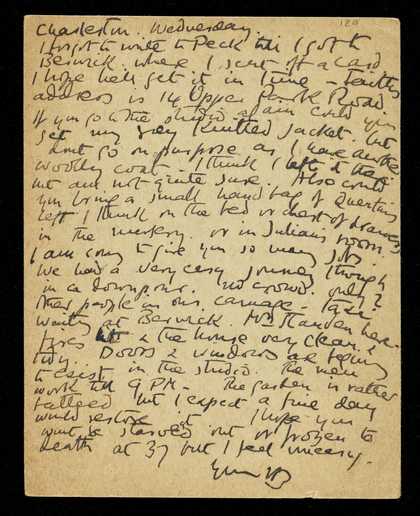 120
Charleston. Wednesday
I forgot to write to Peck till I got to
Berwick where I sent off a card
I hope he'll get it in time – Faith's
address is 14 Upper Park Road
If you go to the studio again could you
get my grey knitted jacket. but
dont go on purpose as I have another
woolly coat – I think I left it there
but am not quite sure. Also could
you bring a small hand bag of Quentins
left I think on the bed or chest of drawers
in the nursery. or in Julians room.
I am sorry to give you so many jobs
We had a very easy journey though
in a downpour. no crowd. only 2
other people in our carriage – taxi
waiting at Berwick. Mrs Harden here –
fires lit & the house very clean &
tidy. Doors & windows are being
to exist in the studio. The men
work till 9 P.M – The garden is rather
battered but I expect a fine day
would restore it. I hope you
wont be starved out or frozen to
death at 37 but I feel uneasy.
Your VB